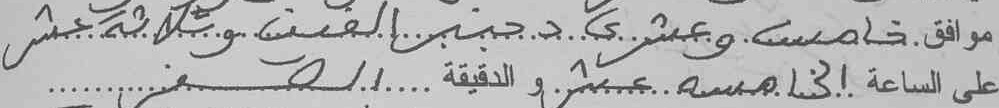 موافق خامس وعشرى دجنبر الفين وثلاثة عشر
على الساعة الخامسة عشر و الدقيقة الصفر